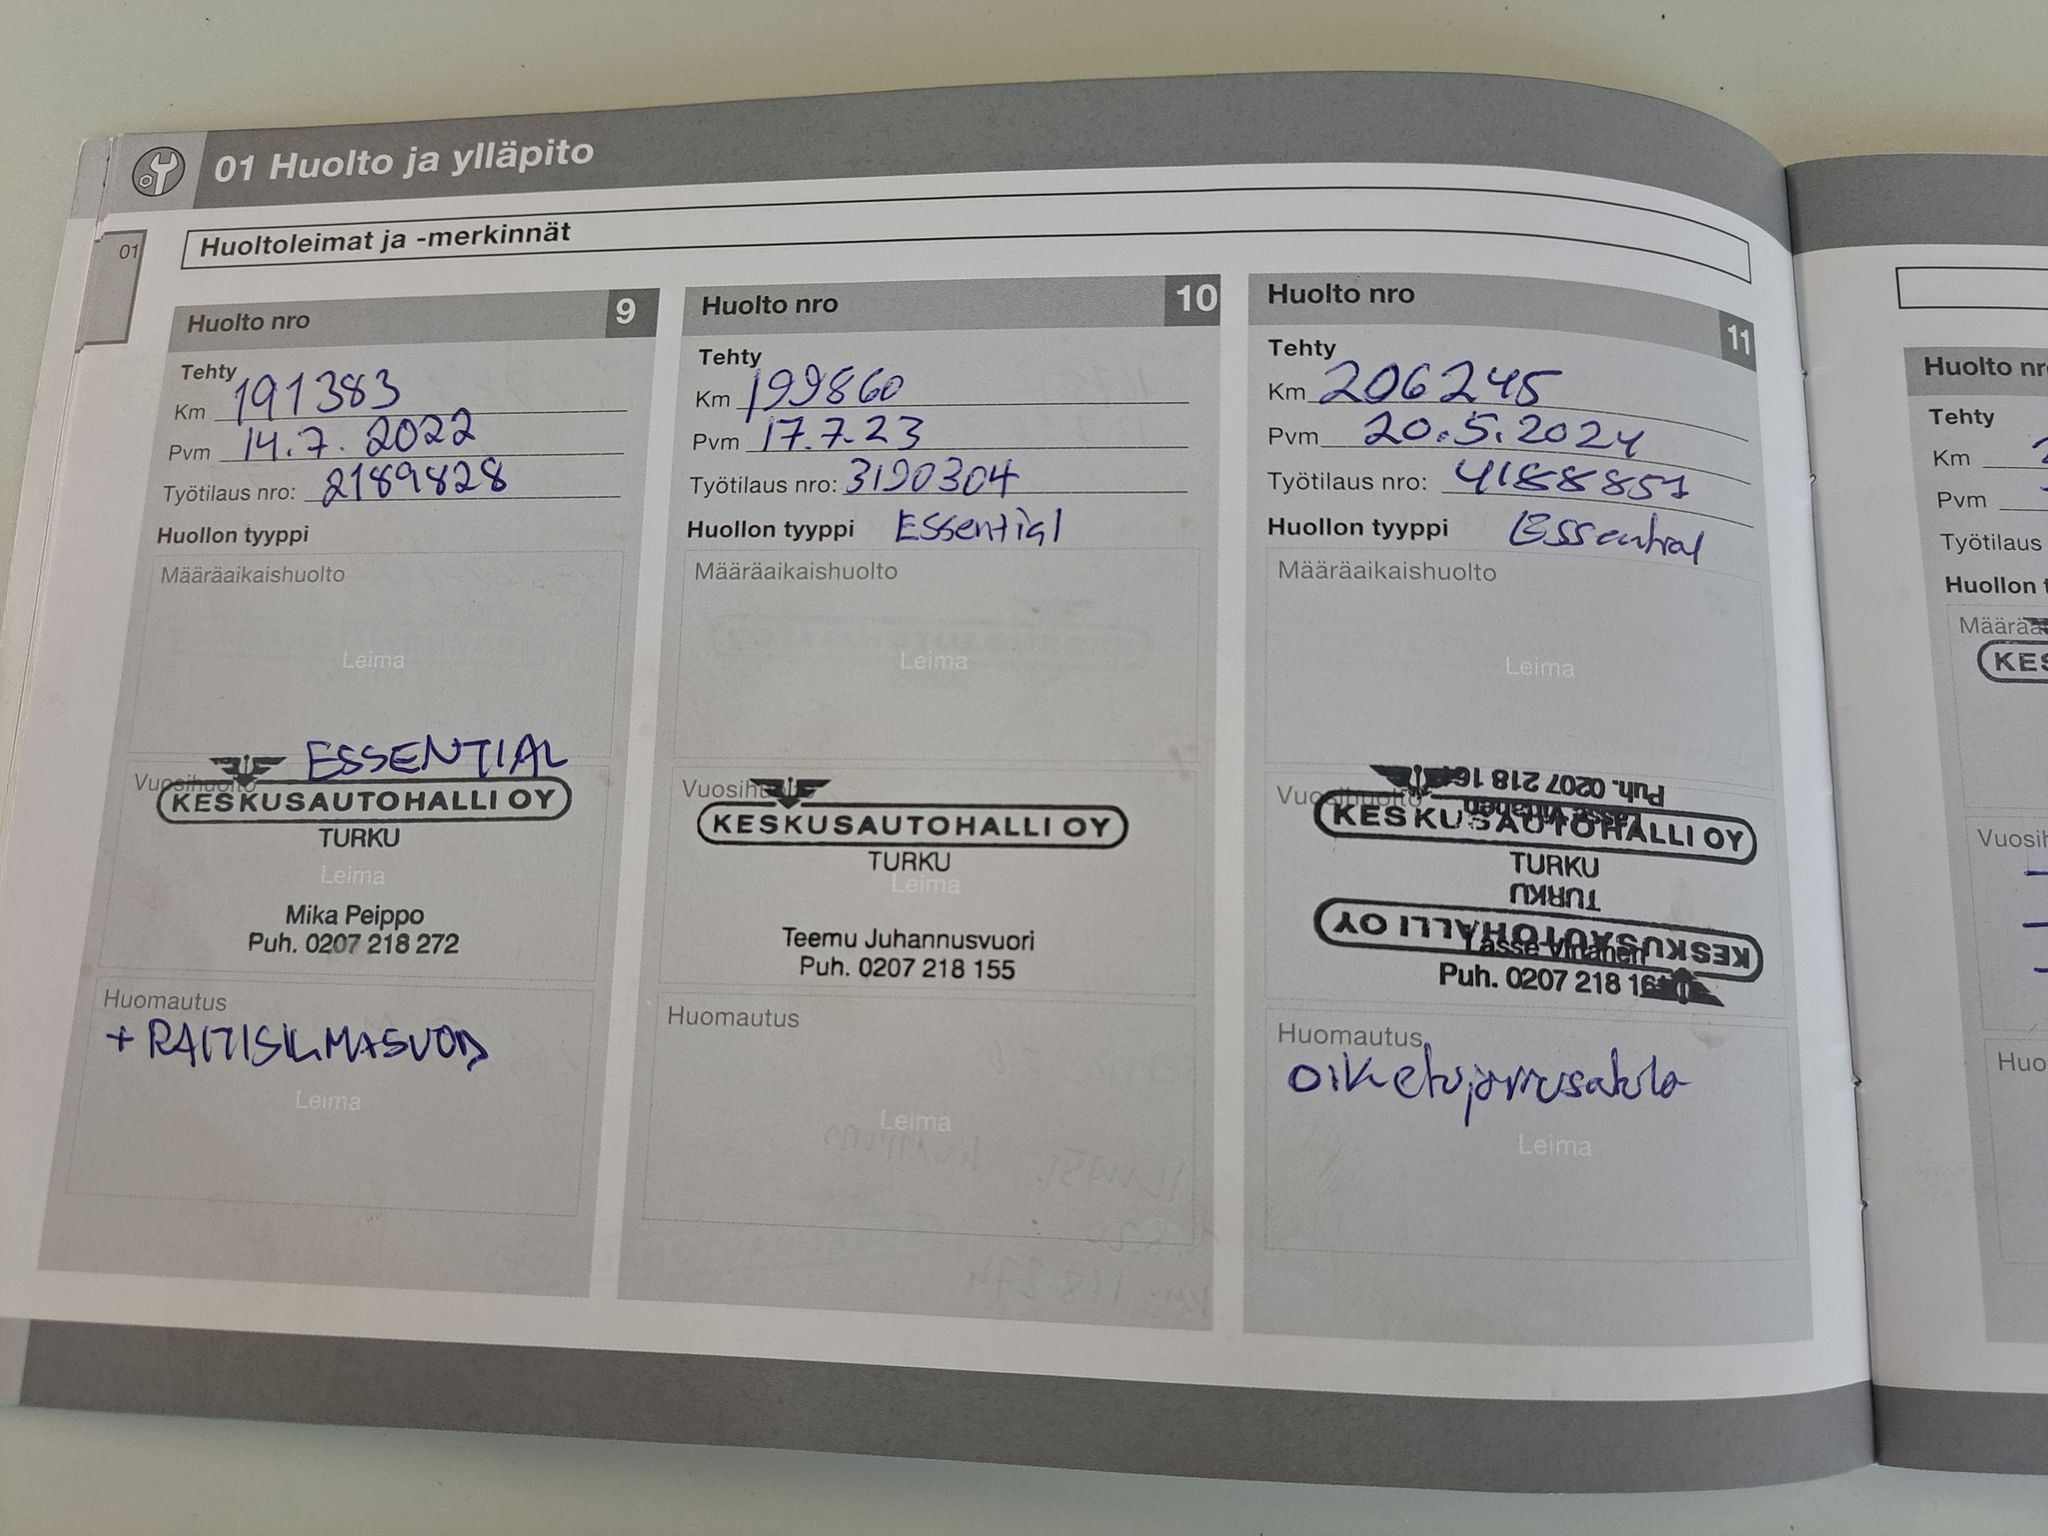 01 Huolto ja ylläpito
01
Huoltoleimat ja -merkinnät
Huolto nro 9
Tehty
Km 191383
Pvm 14.7.2022
Työtilaus nro: 2189828
Huollon tyyppi
Määräaikaishuolto
Leima
ESSENTIAL
Vuosihuolto
KESKUSAUTOHALLI OY
TURKU
Leima
Mika Peippo
Puh. 0207 218 272
Huomautus
+ RAITISILMASUOD
Leima
Huolto nro 10
Tehty
Km 199860
Pvm 17.7.23
Työtilaus nro: 3190304
Huollon tyyppi Essential
Määräaikaishuolto
Leima
Vuosihuolto
KESKUSAUTOHALLI OY
TURKU
Leima
Teemu Juhannusvuori
Puh. 0207 218 155
Huomautus
Leima
Huolto nro 11
Tehty
Km 206245
Pvm 20.5.2024
Työtilaus nro: 4188851
Huollon tyyppi Essential
Määräaikaishuolto
Leima
Puh. 0207 218
Vuosihuolto
KESKUSAUTOHALLI OY
TURKU
TURKU
KESKUSAUTOHALLI OY
Lasse
Puh. 0207 218
Huomautus
Leima
Huolto
Tehty
Km
Pvm
Työtilaus
Huollon